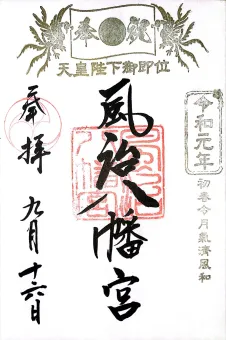 奉祝
天皇陛下御即位
令和元年
初春令月氣淑風和
奉拝
風治八幡宮
九月十六日